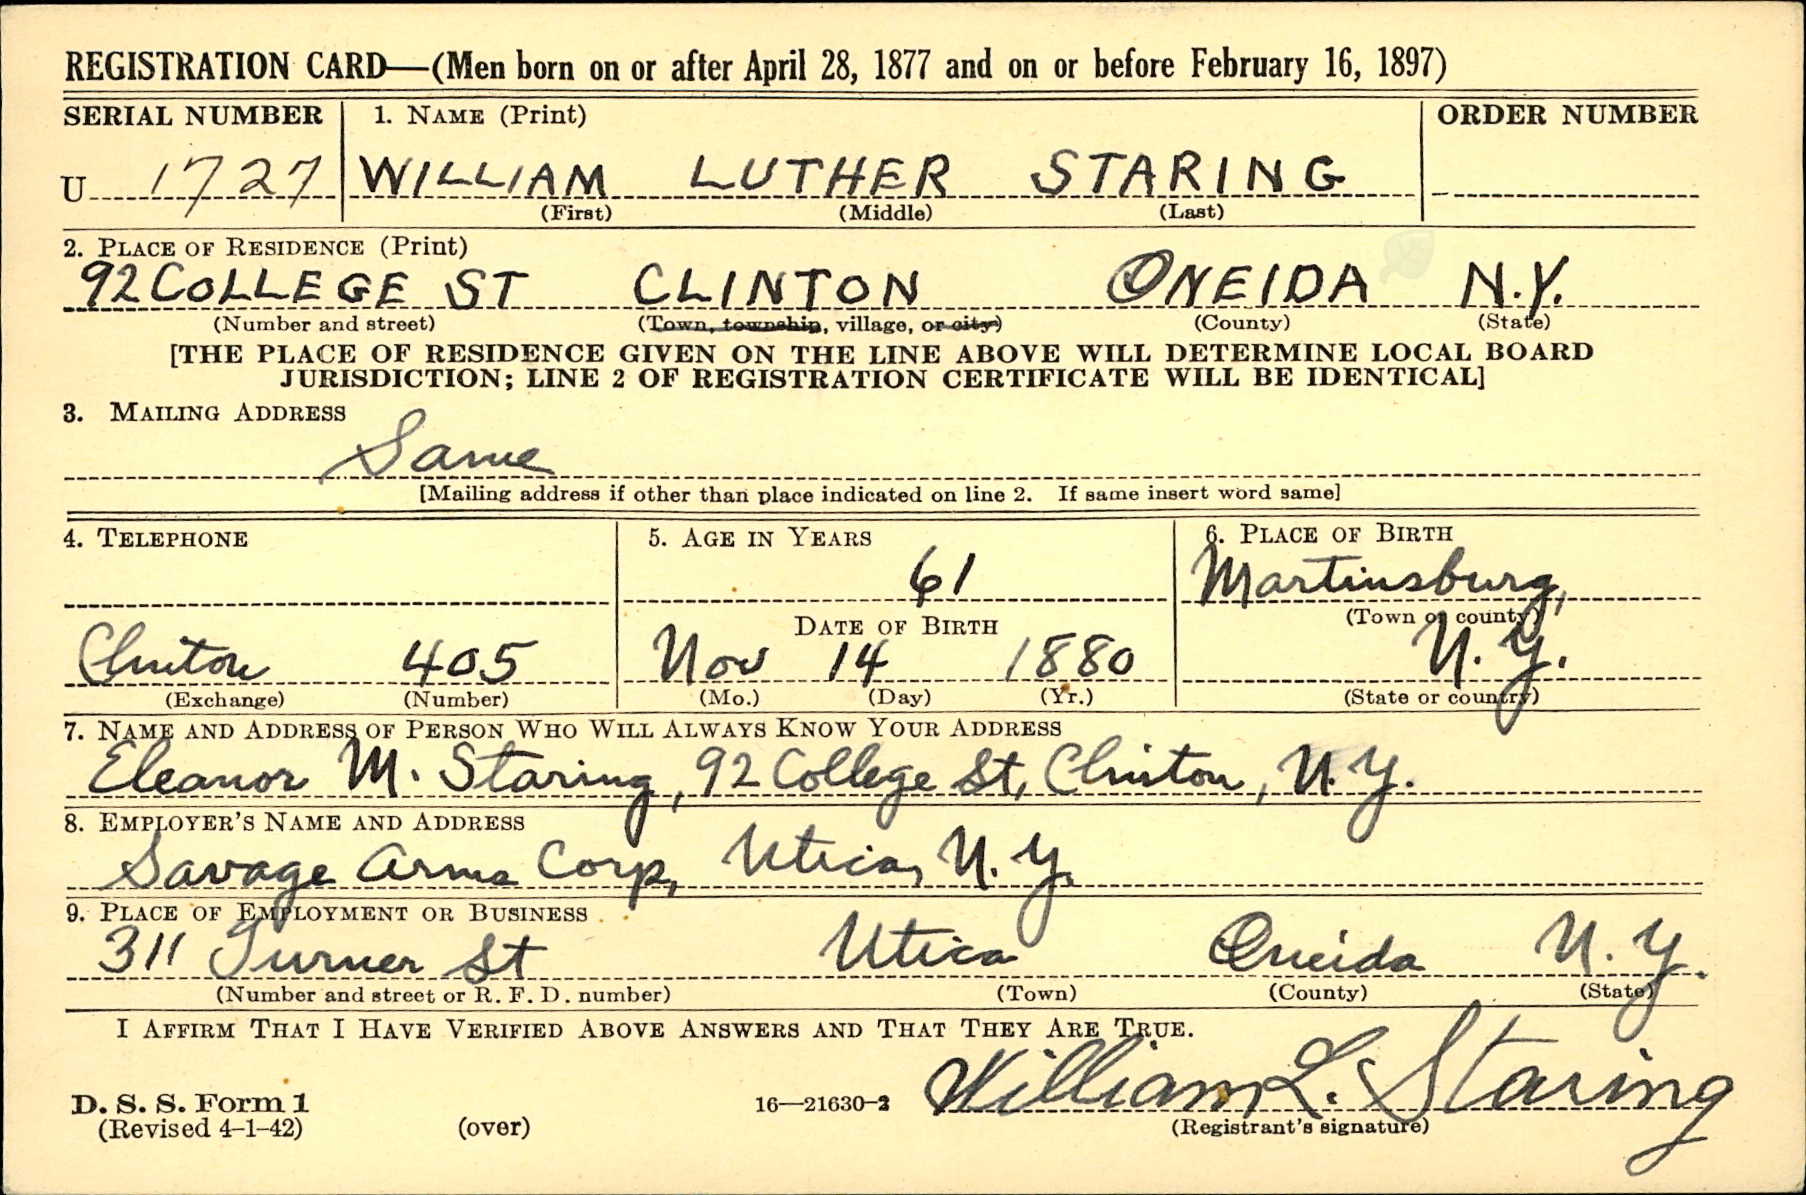 REGISTRATION CARD—(Men born on or after April 28, 1877 and on or before February 16, 1897)
SERIAL NUMBER 1. NAME (Print) ORDER NUMBER
U 1727 WILLIAM LUTHER STARING
(First) (Middle) (Last)
2. PLACE OF RESIDENCE (Print)
92 COLLEGE ST CLINTON ONEIDA N.Y.
(Number and street) (Town, township, village, or city) (County) (State)
[THE PLACE OF RESIDENCE GIVEN ON THE LINE ABOVE WILL DETERMINE LOCAL BOARD
JURISDICTION; LINE 2 OF REGISTRATION CERTIFICATE WILL BE IDENTICAL]
3. MAILING ADDRESS
Same
[Mailing address if other than place indicated on line 2. If same insert word same]
4. TELEPHONE 5. AGE IN YEARS 6. PLACE OF BIRTH
61 Martinsburg,
DATE OF BIRTH (Town or county)
Clinton 405 Nov 14 1880 N.Y.
(Exchange) (Number) (Mo.) (Day) (Yr.) (State or country)
7. NAME AND ADDRESS OF PERSON WHO WILL ALWAYS KNOW YOUR ADDRESS
Eleanor M. Staring, 92 College St, Clinton, N.Y.
8. EMPLOYER'S NAME AND ADDRESS
Savage Arms Corp, Utica, N.Y.
9. PLACE OF EMPLOYMENT OR BUSINESS
311 Turner St Utica Oneida N.Y.
(Number and street or R. F. D. number) (Town) (County) (State)
I AFFIRM THAT I HAVE VERIFIED ABOVE ANSWERS AND THAT THEY ARE TRUE.
William L. Staring
D. S. S. Form 1 16—21630-2
(Revised 4-1-42) (over) (Registrant's signature)